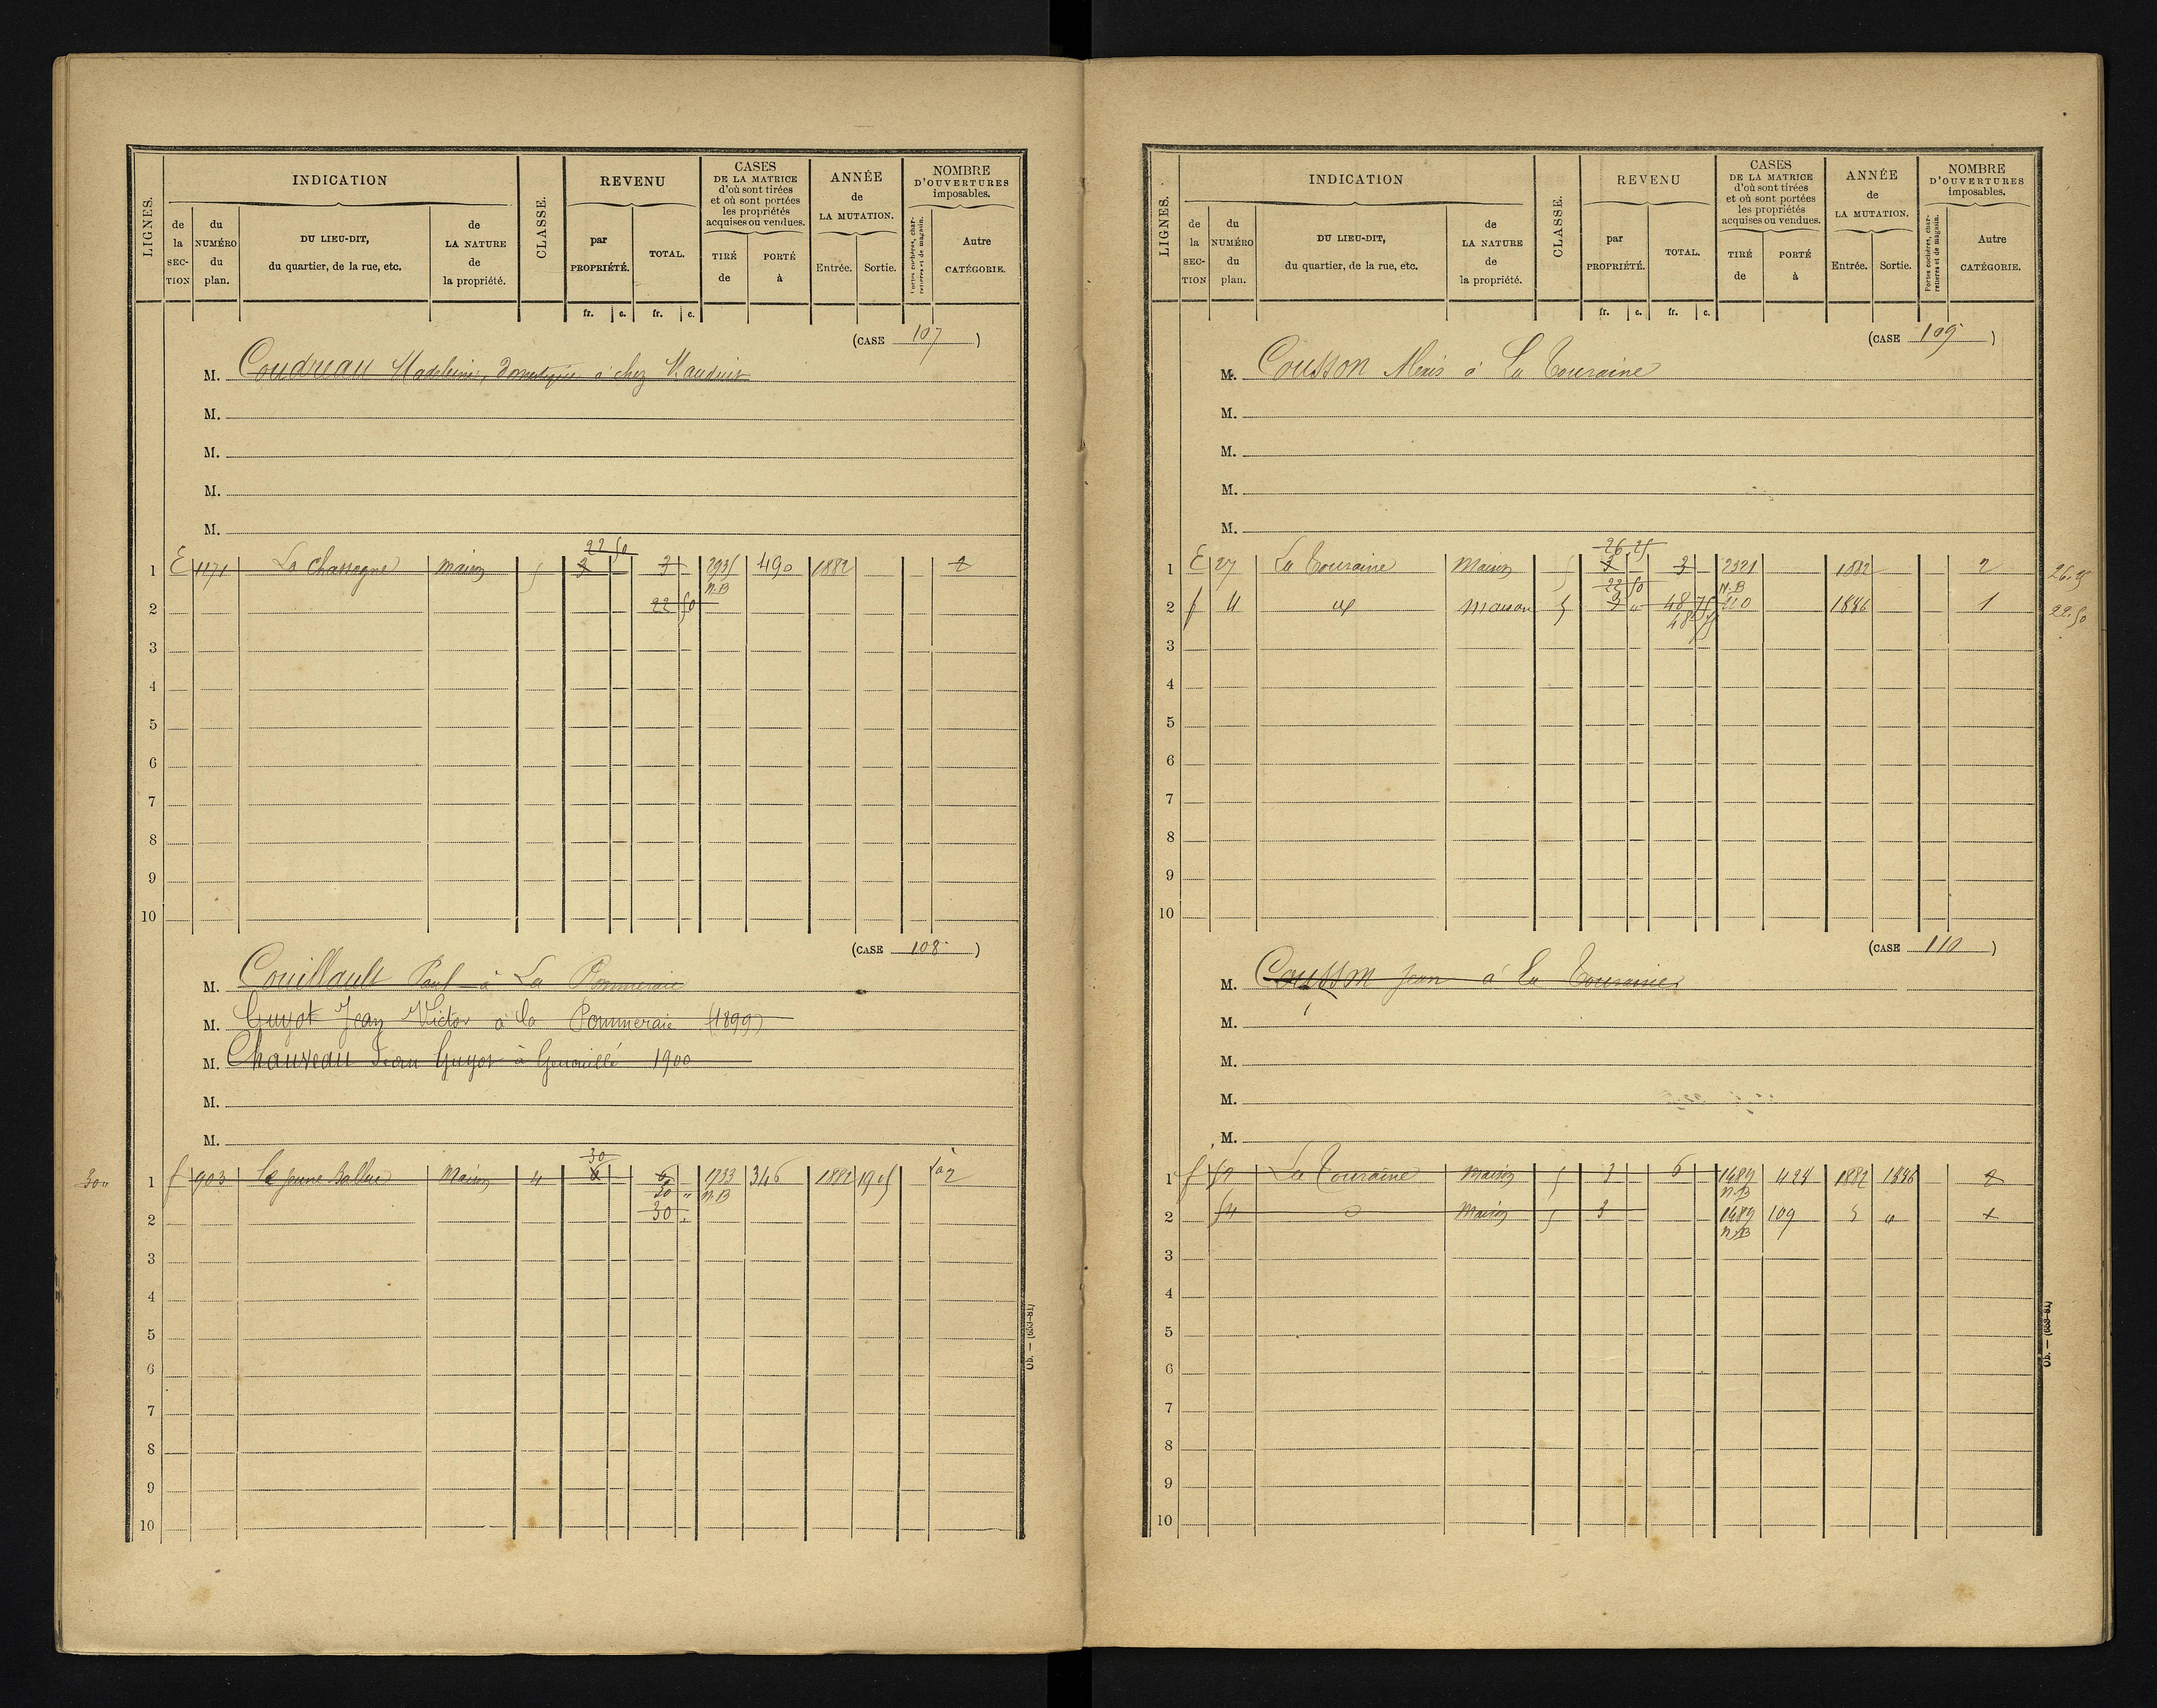 LIGNES.
INDICATION
de la SEC-TION
du NUMÉRO du plan.
DU LIEU-DIT, du quartier, de la rue, etc.
de LA NATURE de la propriété.
CLASSE.
REVENU
par PROPRIÉTÉ.
TOTAL.
CASES DE LA MATRICE d'où sont tirées et où sont portées les propriétés acquises ou vendues.
TIRÉ de
PORTÉ à
ANNÉE de LA MUTATION.
Entrée.
Sortie.
NOMBRE D'OUVERTURES imposables.
Portes cochères, char-retières et de magasin.
Autre CATÉGORIE.
fr. c. fr. c.
(CASE 107)
M. Coudreau Madeleine, domestique à chez Mauduit
M.
M.
M.
M.
22 50
1 E 1171 La Chassagne Maison 5 3 3 2935 490 1882 2
N.B
2 22 50
3
4
5
6
7
8
9
10
(CASE 108)
M. Couillault Paul à La Pommeraie
M. Guyot Jean Victor à la Pommeraie (1899)
M. Chauveau Jean Guyot à Genouillé 1900
M.
M.
30
30 " 1 f 903 Le jeune Maison 4 6 6 1733 346 1882 1905 2
30 " N.B
2 30
3
4
5
6
7
8
9
10
Ob. — (653-81)
LIGNES.
INDICATION
de la SEC-TION
du NUMÉRO du plan.
DU LIEU-DIT, du quartier, de la rue, etc.
de LA NATURE de la propriété.
CLASSE.
REVENU
par PROPRIÉTÉ.
TOTAL.
CASES DE LA MATRICE d'où sont tirées et où sont portées les propriétés acquises ou vendues.
TIRÉ de
PORTÉ à
ANNÉE de LA MUTATION.
Entrée.
Sortie.
NOMBRE D'OUVERTURES imposables.
Portes cochères, char-retières et de magasin.
Autre CATÉGORIE.
fr. c. fr. c.
(CASE 109)
M. Cousson Alexis à La Touraine
M.
M.
M.
M.
26 25
1 E 27 La Touraine Maison 5 3 3 2321 1882 2 26.25
22 50 N.B
2 f 4 Maison 5 3 " 48 75 110 1886 1 22.50
48 75
3
4
5
6
7
8
9
10
(CASE 110)
M. Cousson Jean à La Touraine
M.
M.
M.
M.
1 f 52 La Touraine Maison 5 3 6 1489 424 1882 1886 2
N.B
2 54 Maison 5 3 1489 109 5 " 1
N.B
3
4
5
6
7
8
9
10
Ob. — (653-81)